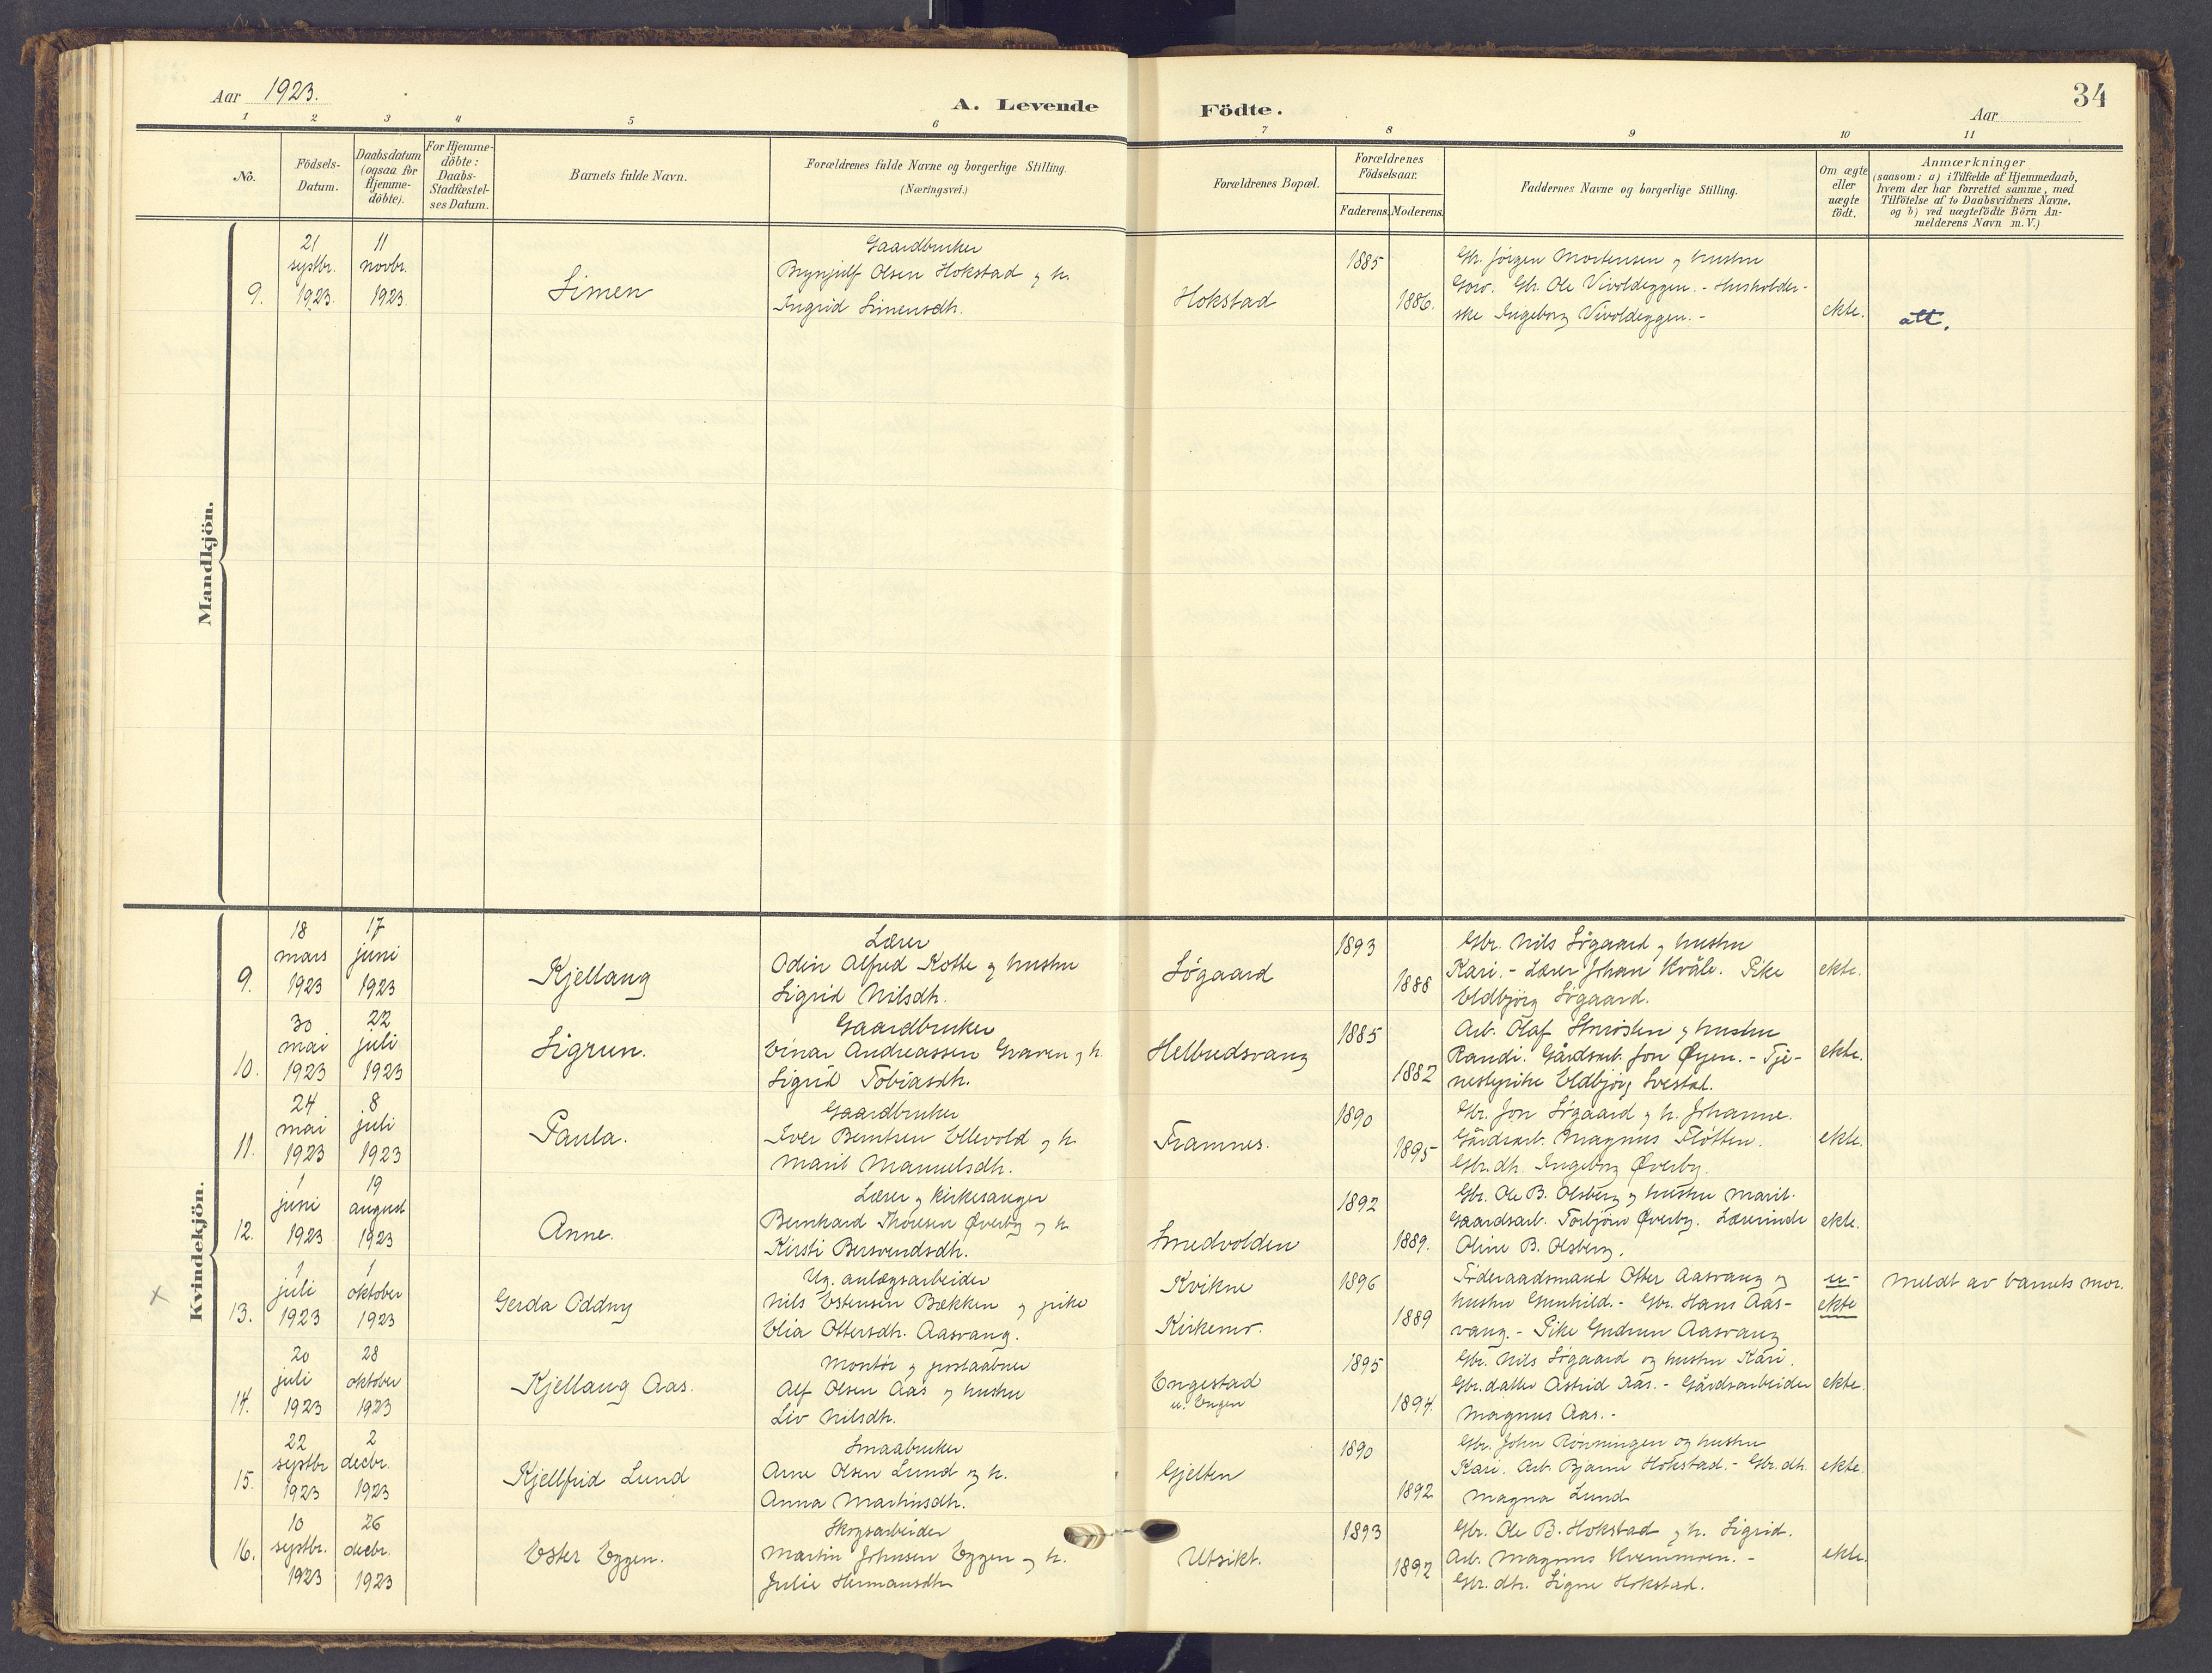 34
Aar 1923.
A. Levende Födte.
Aar
1 2 3 4 5 6 7 8 9 10 11
No.
Födsels-
Datum.
Daabsdatum
(ogsaa for
Hjemme-
döbte).
For Hjemme-
döbte:
Daabs-
Stadfæstel-
ses Datum.
Barnets fulde Navn.
Forældrenes fulde Navne og borgerlige Stilling.
(Næringsvei.)
Forældrenes Bopæl.
Forældrenes
Födselsaar.
Faderens. Moderens.
Faddernes Navne og borgerlige Stilling.
Om ægte
eller
uægte
födt.
Anmærkninger
(saasom: a) i Tilfælde af Hjemmedaab,
hvem der har forrettet samme, med
Tilföielse af to Daabsvidners Navne,
og b) ved uægtefödte Börn An-
melderens Navn m.V.)
Mandkjön.
9.
21
septbr.
1923.
11
novbr.
1923
Simen
Gaardbruker
Brynjulf Olsen Hokstad og h.
Ingrid Simensdh.
Hokstad
1885
1886.
Gbr. Jörgen Mortensen og hustru
Gbr. Ole Vivoldeggen. - Husholder-
ske Ingeborg Vivoldeggen. -
ekte.
att.
Kvindekjön.
9.
18
mars
1923
17
juni
1923
Kjellaug
Lærer
Odin Alfred Kotte og hustru
Sigrid Nilsdh.
Søgaard
1893
1888
Gbr. Nils Søgaard og hustru
Kari. - Lærer Johan Kvåle. Pike
Eldbjørg Søgaard.
ekte.
10.
30
mai
1923
22
juli
1923
Sigrun.
Gaardbruker
Einar Andreassen Graven og h.
Sigrid Tobiasdh.
Helbudsvang
1885
1882
Arb. Olaf Storøsten og hustru
Randi. Gårdsarb. Jon Øyen. - Tje-
nestepike Eldbjørg Svestad.
ekte.
11.
24
mai
1923
8
juli
1923
Paula.
Gaardbruker
Iver Berntsen Ellevold og h.
Marit Manuelsdh.
Framnes.
1890
1895
Gbr. Jon Søgaard og h. Johanne.
Gårdsarb. Magnus Fløtten.
Gbr.dh. Ingeborg Øverby.
ekte.
12.
1
juni
1923
19
august
1923
Anne.
Lærer og kirkesanger
Bernhard Thoresen Øverby og h.
Kirsti Bersvendsdh.
Smedvolden
1892
1889.
Gbr. Ole B. Olsberg og hustru Marit.
Gaardsarb. Torbjørn Øverby. Lærerinde
Oline B. Olsberg.
ekte.
x
13.
1
juli
1923
1
oktober
1923
Gerda Oddny
Ug. anlægsarbeider
Nils Estensen Bækken og pike
Elia Ottersdh. Aasvang.
Kvikne
Kirkemo.
1896
1889
Føderaadsmand Otter Aasvang og
hustru Gunhild. - Gbr. Hans Aas-
vang. - Pike Gudrun Aasvang
u-
ekte
Meldt av barnets mor.
14.
20
juli
1923
28
oktober
1923
Kjellaug Aas.
Montør og postaabner
Alf Olsen Aas og hustru
Liv Nilsdh.
Engestad
u. Engen
1895
1894.
Gbr. Nils Søgaard og hustru Kari.
Gbr.datter Astrid Aas. - Gårdsarbeider
Magnus Aas. -
ekte.
15.
22
septbr
1923
2
decbr.
1923
Kjellfrid Lund
Smaabruker
Arne Olsen Lund og h.
Anna Martinsdh.
Gjelten
1890
1892
Gbr. John Rønningen og hustru
Kari. Arb. Bjarne Hokstad. - Gbr.dh.
Magna Lund
ekte.
16.
10
septbr.
1923
26
decbr.
1923
Ester Eggen.
Skogsarbeider
Martin Johnsen Eggen og h.
Julie Hermansdh
Utsikt.
1893
1892
Gbr. Ole B. Hokstad og h. Sigrid.
Arb. Magnus Kvernmoen. -
Gbr.dh. Signe Hokstad.
ekte.